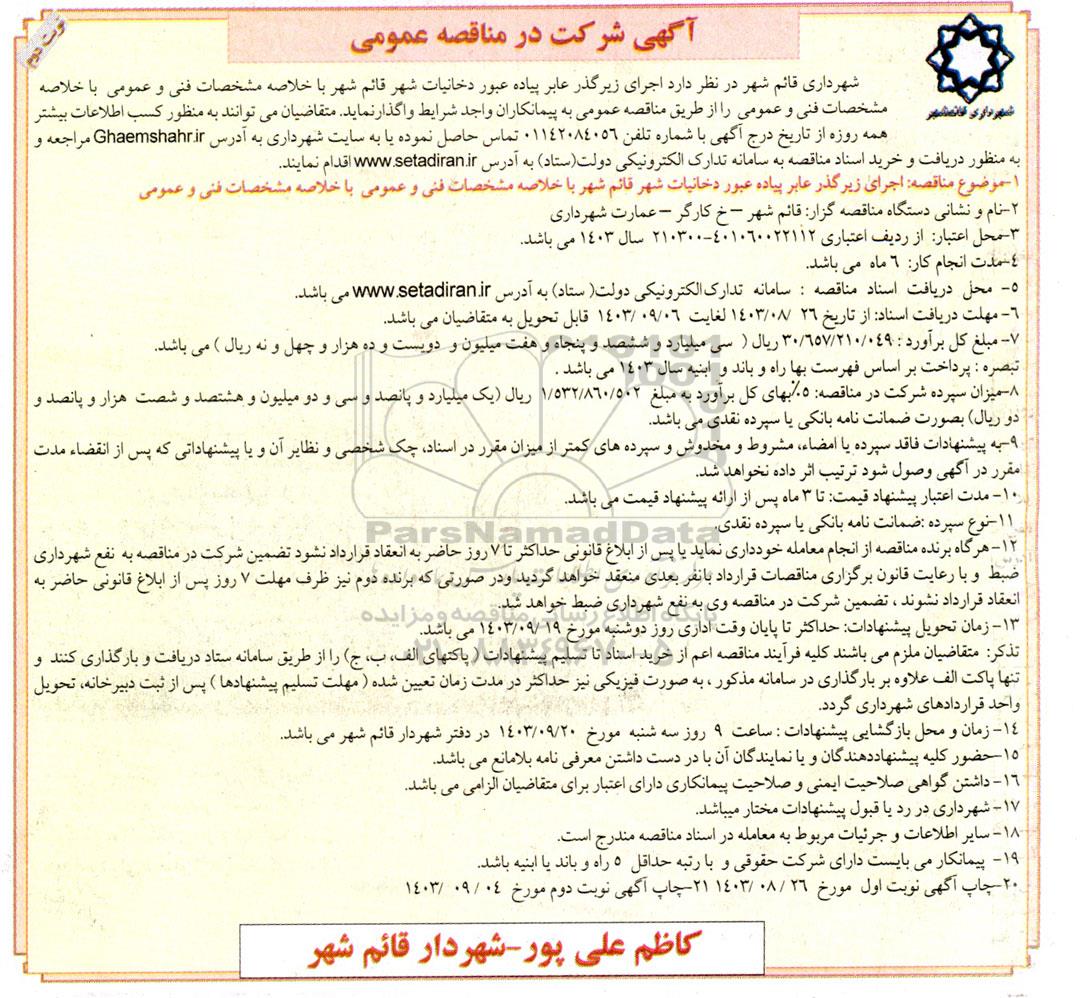 نوبت دوم
آگهی شرکت در مناقصه عمومی
شهرداری قائمشهر
شهرداری قائم شهر در نظر دارد اجرای زیرگذر عابر پیاده عبور دخانیات شهر قائم شهر با خلاصه مشخصات فنی و عمومی با خلاصه
مشخصات فنی و عمومی را از طریق مناقصه عمومی به پیمانکاران واجد شرایط واگذارنماید. متقاضیان می توانند به منظور کسب اطلاعات بیشتر
همه روزه از تاریخ درج آگهی با شماره تلفن ۰۱۱۴۲۰۸۴۰۵۶ تماس حاصل نموده یا به سایت شهرداری به آدرس Ghaemshahr.ir مراجعه و
به منظور دریافت و خرید اسناد مناقصه به سامانه تدارک الکترونیکی دولت(ستاد) به آدرس www.setadiran.ir اقدام نمایند.
۱-موضوع مناقصه: اجرای زیرگذر عابر پیاده عبور دخانیات شهر قائم شهر با خلاصه مشخصات فنی و عمومی با خلاصه مشخصات فنی و عمومی
۲-نام و نشانی دستگاه مناقصه گزار: قائم شهر –خ کارگر –عمارت شهرداری
۳-محل اعتبار: از ردیف اعتباری ۴۰۱۰۶۰۰۲۲۱۱۲-۲۱۰۳۰۰ سال ۱۴۰۳ می باشد.
۴-مدت انجام کار: ۶ ماه می باشد.
۵- محل دریافت اسناد مناقصه : سامانه تدارک الکترونیکی دولت( ستاد) به آدرس www.setadiran.ir می باشد.
۶- مهلت دریافت اسناد: از تاریخ ۲۶ /۱۴۰۳/۰۸ لغایت ۰۹/۰۶ /۱۴۰۳ قابل تحویل به متقاضیان می باشد.
۷- مبلغ کل برآورد : ۳۰/۶۵۷/۲۱۰/۰۴۹ ریال ( سی میلیارد و ششصد و پنجاه و هفت میلیون و دویست و ده هزار و چهل و نه ریال ) می باشد.
تبصره : پرداخت بر اساس فهرست بها راه و باند و ابنیه سال ۱۴۰۳ می باشد .
۸-میزان سپرده شرکت در مناقصه: ۵٪بهای کل برآورد به مبلغ ۱/۵۳۲/۸۶۰/۵۰۲ ریال (یک میلیارد و پانصد و سی و دو میلیون و هشتصد و شصت هزار و پانصد و
دو ریال) بصورت ضمانت نامه بانکی یا سپرده نقدی می باشد.
۹-به پیشنهادات فاقد سپرده یا امضاء، مشروط و مخدوش و سپرده های کمتر از میزان مقرر در اسناد، چک شخصی و نظایر آن و یا پیشنهاداتی که پس از انقضاء مدت
مقرر در آگهی وصول شود ترتیب اثر داده نخواهد شد.
۱۰- مدت اعتبار پیشنهاد قیمت: تا ۳ ماه پس از ارائه پیشنهاد قیمت می باشد.
۱۱-نوع سپرده :ضمانت نامه بانکی یا سپرده نقدی.
ParsNamadData
۱۲-هرگاه برنده مناقصه از انجام معامله خودداری نماید یا پس از ابلاغ قانونی حداکثر تا ۷ روز حاضر به انعقاد قرارداد نشود تضمین شرکت در مناقصه به نفع شهرداری
ضبط و با رعایت قانون برگزاری مناقصات قرارداد بانفر بعدی منعقد خواهد گردید ودر صورتی که برنده دوم نیز ظرف مهلت ۷ روز پس از ابلاغ قانونی حاضر به
انعقاد قرارداد نشوند ، تضمین شرکت در مناقصه وی به نفع شهرداری ضبط خواهد شد.
پایگاه اطلاع رسانی مناقصه و مزایده
۱۳- زمان تحویل پیشنهادات: حداکثر تا پایان وقت اداری روز دوشنبه مورخ ۱۴۰۳/۰۹/۱۹ می باشد.
تذکر: متقاضیان ملزم می باشند کلیه فرآیند مناقصه اعم از خرید اسناد تا تسلیم پیشنهادات ( پاکتهای الف، ب، ج) را از طریق سامانه ستاد دریافت و بارگذاری کنند و
تنها پاکت الف علاوه بر بارگذاری در سامانه مذکور ، به صورت فیزیکی نیز حداکثر در مدت زمان تعیین شده ( مهلت تسلیم پیشنهادها ) پس از ثبت دبیرخانه، تحویل
واحد قراردادهای شهرداری گردد.
۱۴- زمان و محل بازگشایی پیشنهادات : ساعت ۹ روز سه شنبه مورخ ۱۴۰۳/۰۹/۲۰ در دفتر شهردار قائم شهر می باشد.
۱۵-حضور کلیه پیشنهاددهندگان و یا نمایندگان آن با در دست داشتن معرفی نامه بلامانع می باشد.
۱۶- داشتن گواهی صلاحیت ایمنی و صلاحیت پیمانکاری دارای اعتبار برای متقاضیان الزامی می باشد.
۱۷- شهرداری در رد یا قبول پیشنهادات مختار میباشد.
۱۸- سایر اطلاعات و جرئیات مربوط به معامله در اسناد مناقصه مندرج است.
۱۹- پیمانکار می بایست دارای شرکت حقوقی و با رتبه حداقل ۵ راه و باند یا ابنیه باشد.
۲۰-چاپ آگهی نوبت اول مورخ ۲۶ / ۰۸ /۱۴۰۳ ۲۱-چاپ آگهی نوبت دوم مورخ ۰۴ / ۰۹ /۱۴۰۳
کاظم علی پور-شهردار قائم شهر